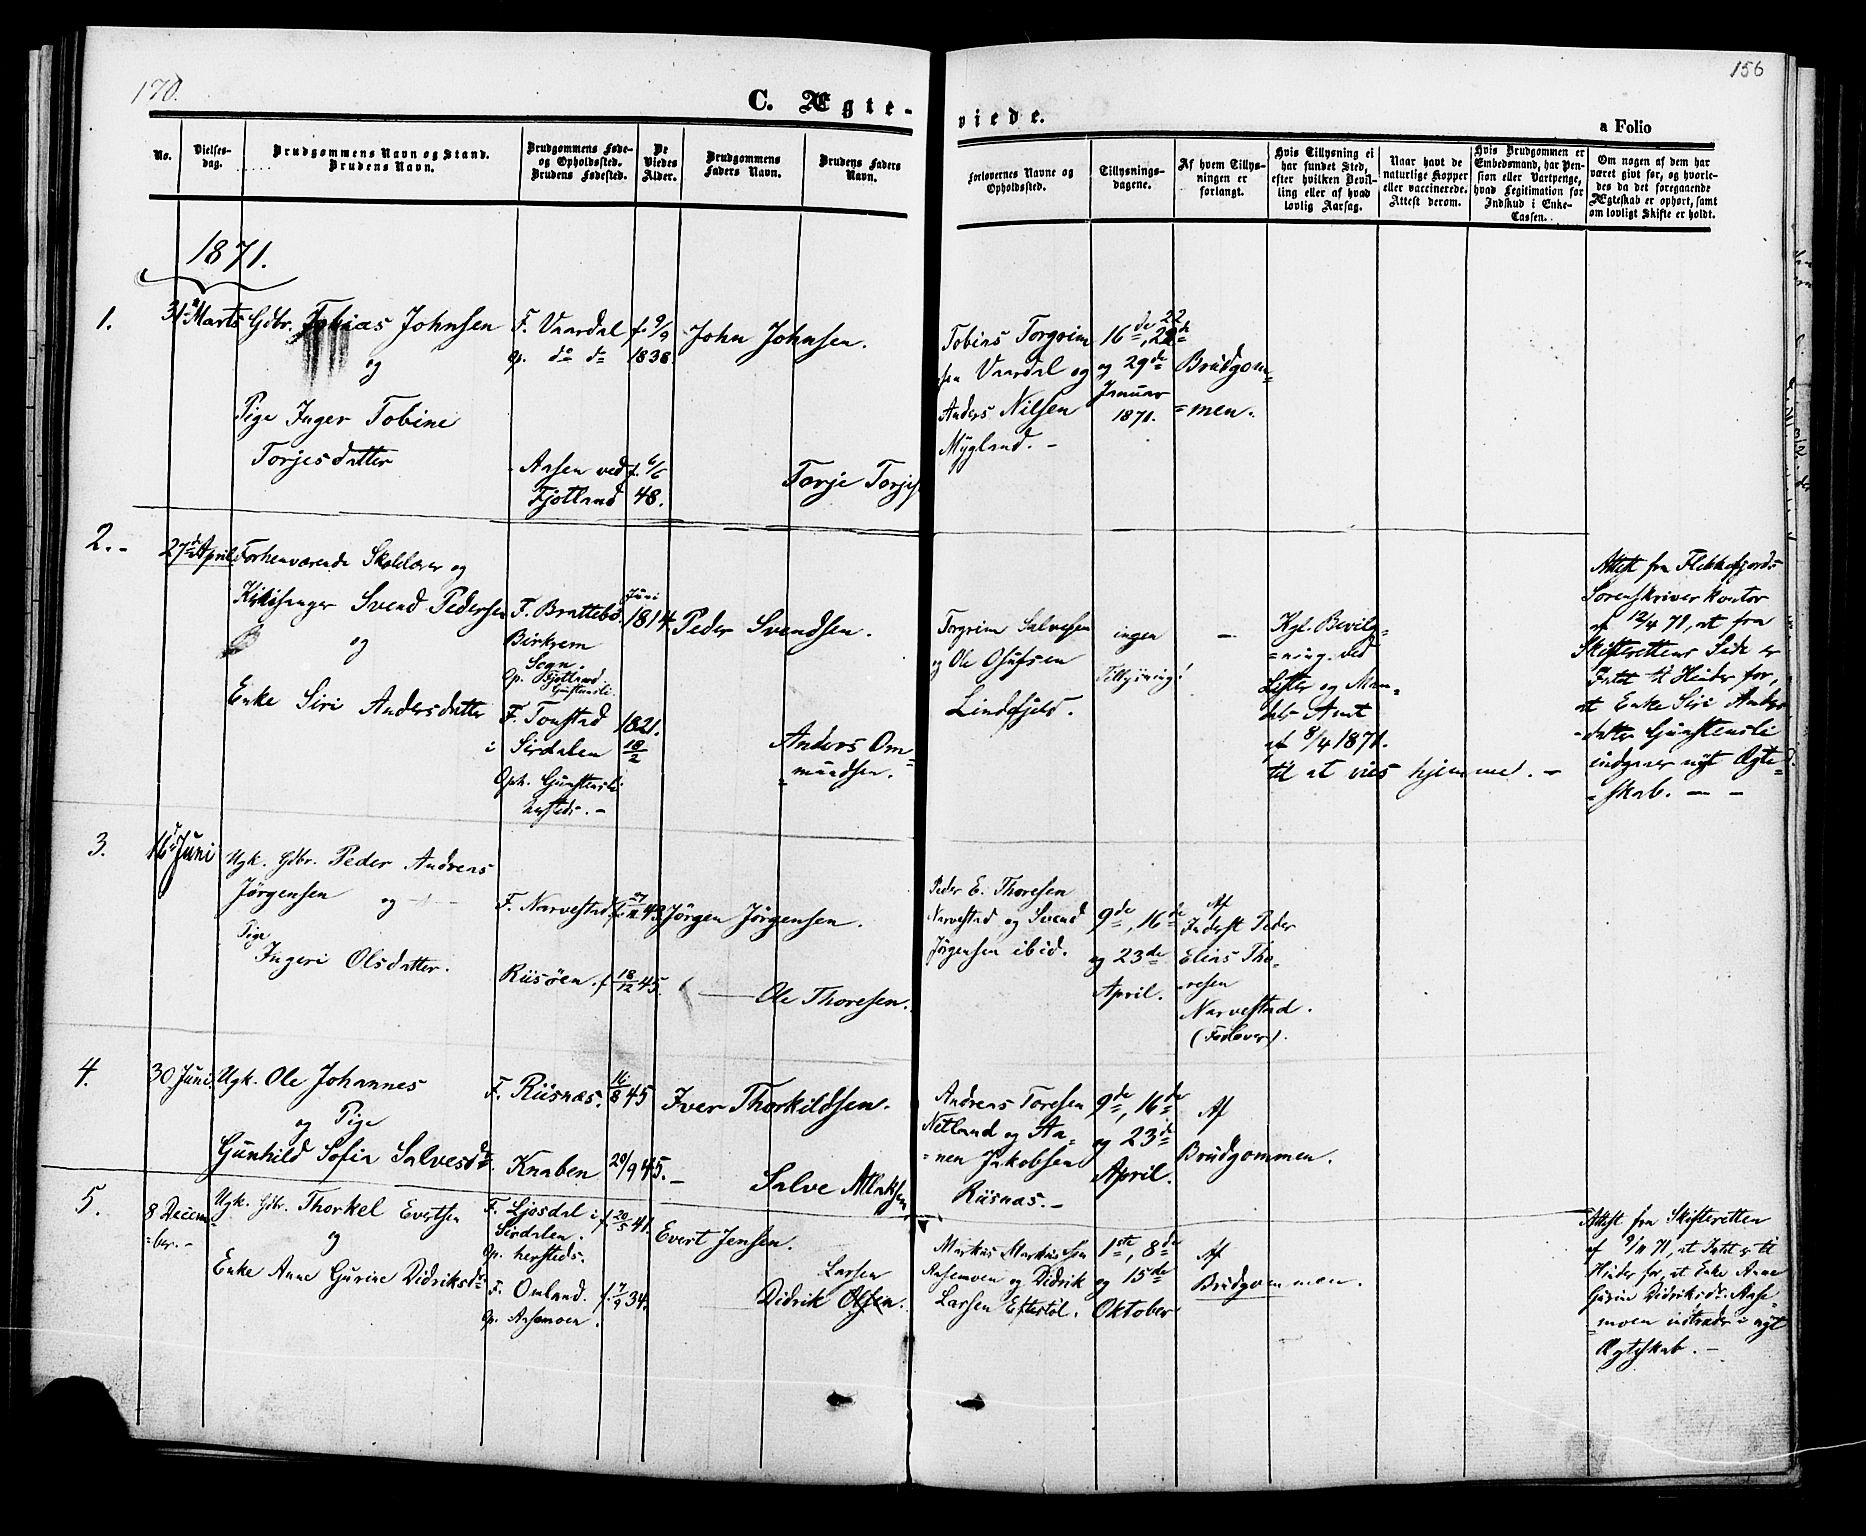 170.
156
C. Ægteviede.
a Folio
No.
Vielses-
dag.
Brudgommens Navn og Stand.
Brudens Navn.
Brudgommens Føde-
og Opholdssted.
Brudens Fødested.
De
Viedes
Alder.
Brudgommens
Faders Navn.
Brudens Faders
Navn.
Forlovernes Navne og
Opholdssted.
Tillysnings-
dagene.
Af hvem Tillys-
ningen er
forlangt.
Hvis Tillysning ei
har fundet Sted,
efter hvilken Bevil-
ling eller af hvad
lovlig Aarsag.
Naar havt de
naturlige Kopper
eller vaccinerede.
Attest derom.
Hvis Brudgommen er
Embedsmand, har Pen-
sion eller Vartpenge,
hvad Legitimation for
Indskud i Enke-
Cassen.
Om nogen af dem har
været givt før, og hvorle-
des da det foregaaende
Ægteskab er ophørt, samt
om lovligt Skifte er holdt.
1871.
1.
31 Marts
Gdbr. Tobias Johnsen
og
Pige Inger Tobine
Torjesdatter
F. Vaardal
op. do do
Aasen ved
Fjotland
f. 9/9
1838.
f. 6/6
48.
John Johnsen.
Torje Torjes
Tobias Torgrim
sen Vaardal og
Anders Nilsen
Mygland. -
22
16de, 22de
og 29de
Januar
1871.
Brudgom=
=men.
2. -
27de April
Forhenværende Skolelærer og
Kirkesanger Svend Pedersen
og
Enke Siri Andersdatter
F. Brattebø.
Birkrem
Sogn.
Op. Fjotland
F. Tonstad
i Sirdalen
Oph. Gunstensli
Juni
1814.
1821.
18/2
Peder Svendsen.
Anders Om=
=mundsen.
Torgrim Salvesen
og Ole Olufsen
Lindefjeld.
ingen
Tillysning!
-
Kgl. Bevilg=
=ning ved
Lister og Man=
dals Amt
af 8/4 1871.
til at vies hjemme. -
Attest fra Flekkefjords
Sorenskriverkontor
af 12/4 71, at fra
Skifterettens Side er
Intet til Hinder for,
at Enke Siri Anders
=datter Gunstensli
indgaar nyt Ægte=
=skab. - -
3.
16 Juni
Ugk. Gdbr. Peder Andreas
Jørgensen og
Pige
Ingeri Olsdatter.
F. Narvestad
Riisøen.
f. 18/12 45.
Jørgen Jørgensen.
Ole Thoresen.
Peder E. Thoresen
Narvestad og Svend
Jørgensen ibid.
9de, 16de
og 23de
April.
Af
Inderst Peder
Elias Tho=
=resen
Narvestad.
(Forlover).
4.
30 Juni
Ugk. Ole Johannes
og Pige
Gunhild Sofia Salvesd.
F. Riisnæs.
Knaben
16/8 45
20/9 45. -
Iver Thorkildsen.
Salve Atlaksen
Andreas Toresen
Netland og Aa=
=nen Jakobsen
Riisnæs. -
9de, 16de
og 23de
April.
Af
Brudgommen.
5.
8 Decem=
=ber. -
Ugk. Gdbr. Thorkel Evertsen
og
Enke Anne Gurine Didriksd.
F. Ljosdal i
Sirdalen.
op. hersteds.
F. Omland.
op. Aasemoen.
f. 20/5 41.
f. 7/9 34.
Evert Jensen.
Larsen
Didrik Olsen.
Markus Markussen
Aasemoen og Didrik
Larsen Eftestøl.
1ste, 8de
og 15de
Oktober
Af
Brudgommen.
Attest fra Skifteretten
af 9/11 71, at Intet er til
Hinder for, at Enke Anne
Gurine Didriksdr. Aase=
=moen indtræder i nyt
Ægteskab. -